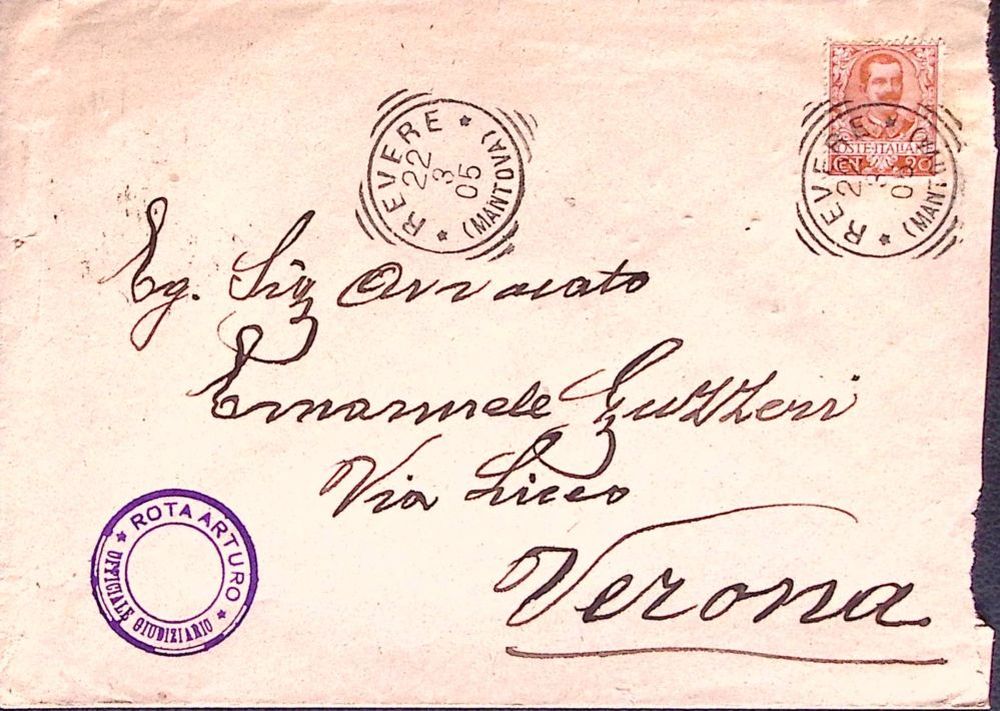 REVERE
22
3
05
(MANTOVA)
POSTE·ITALIANE
CEN. 20
REVERE
22
3
05
(MANTOVA)
Eg. Sig Avvocato
Emanuele
Via Liceo
Verona
ROTA ARTURO
UFFICIALE GIUDIZIARIO